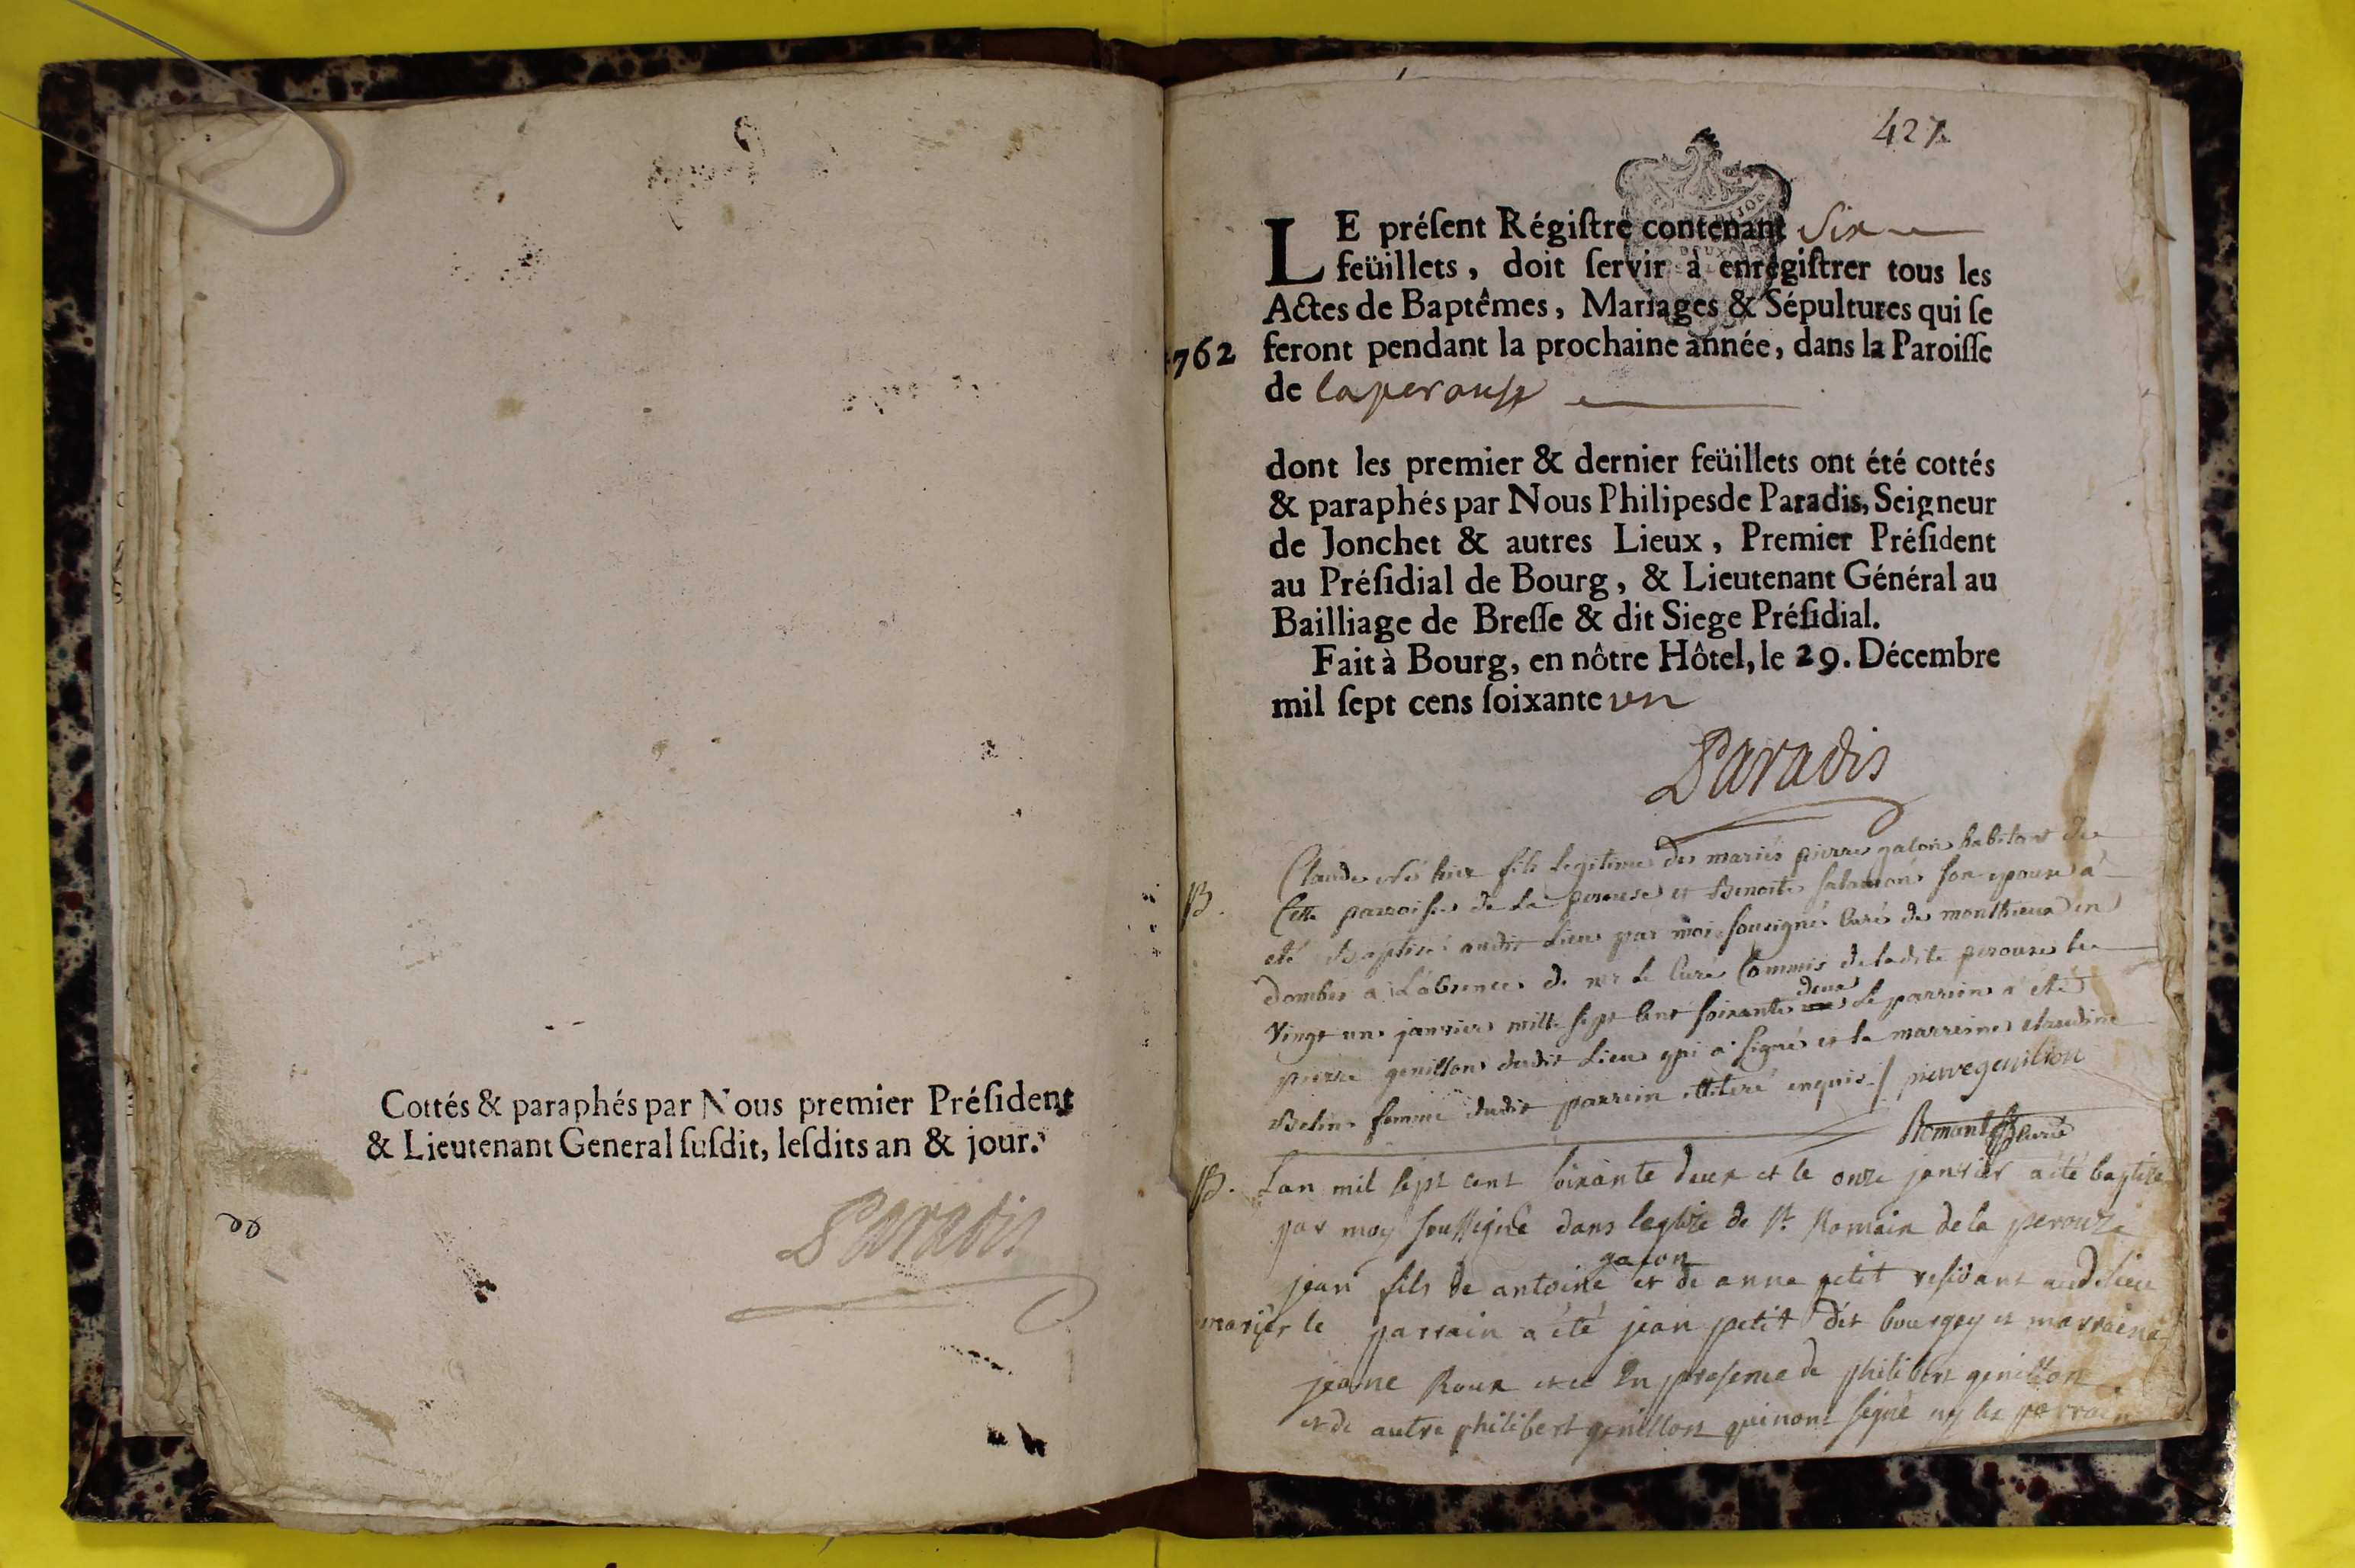 Cottés & paraphés par Nous premier Préſident
& Lieutenant General ſuſdit, leſdits an & jour.
Paradis
427
LE préſent Régiſtre contenant Six
feüillets, doit ſervir à enrégiſtrer tous les
Actes de Baptêmes, Mariages & Sépultures qui ſe
1762 feront pendant la prochaine année, dans la Paroiſſe
de laperouse
dont les premier & dernier feüillets ont été cottés
& paraphés par Nous Philipes de Paradis, Seigneur
de Jonchet & autres Lieux, Premier Préſident
au Préſidial de Bourg, & Lieutenant Général au
Bailliage de Breſſe & dit Siege Préſidial.
Fait à Bourg, en nôtre Hôtel, le 29. Décembre
mil ſept cens ſoixante un
Paradis
B. Claude né hier fils legitime des mariés pierre galon habitant de
cette parroisse de la perouse et Benoite salamon son epouse a
eté baptisé audit lieu par moi soussigné curé de monthieux en
dombes a l'absence de mr le curé commis de ladite perouse le
vingt un janvier mille sept cent soixante deux le parrein a eté
pierre genillon dudit lieu qui a signé et la marreine claudine
Belin femme dudit parrein illiteré enquis / pierre genillon
curé
B. Lan mil sept cent soixante deux et le onze janvier a été baptisé
par moy soussigné dans leglize de st Romain de la perouze
jean fils de antoine galon et de anne petit residant audi lieu
mariés le parrain a été jean petit dit bourgey et marraine
jeanne Roux et ce En presence de philibert genillon
et de autre philibert genillon qui nont signé ny le parrain